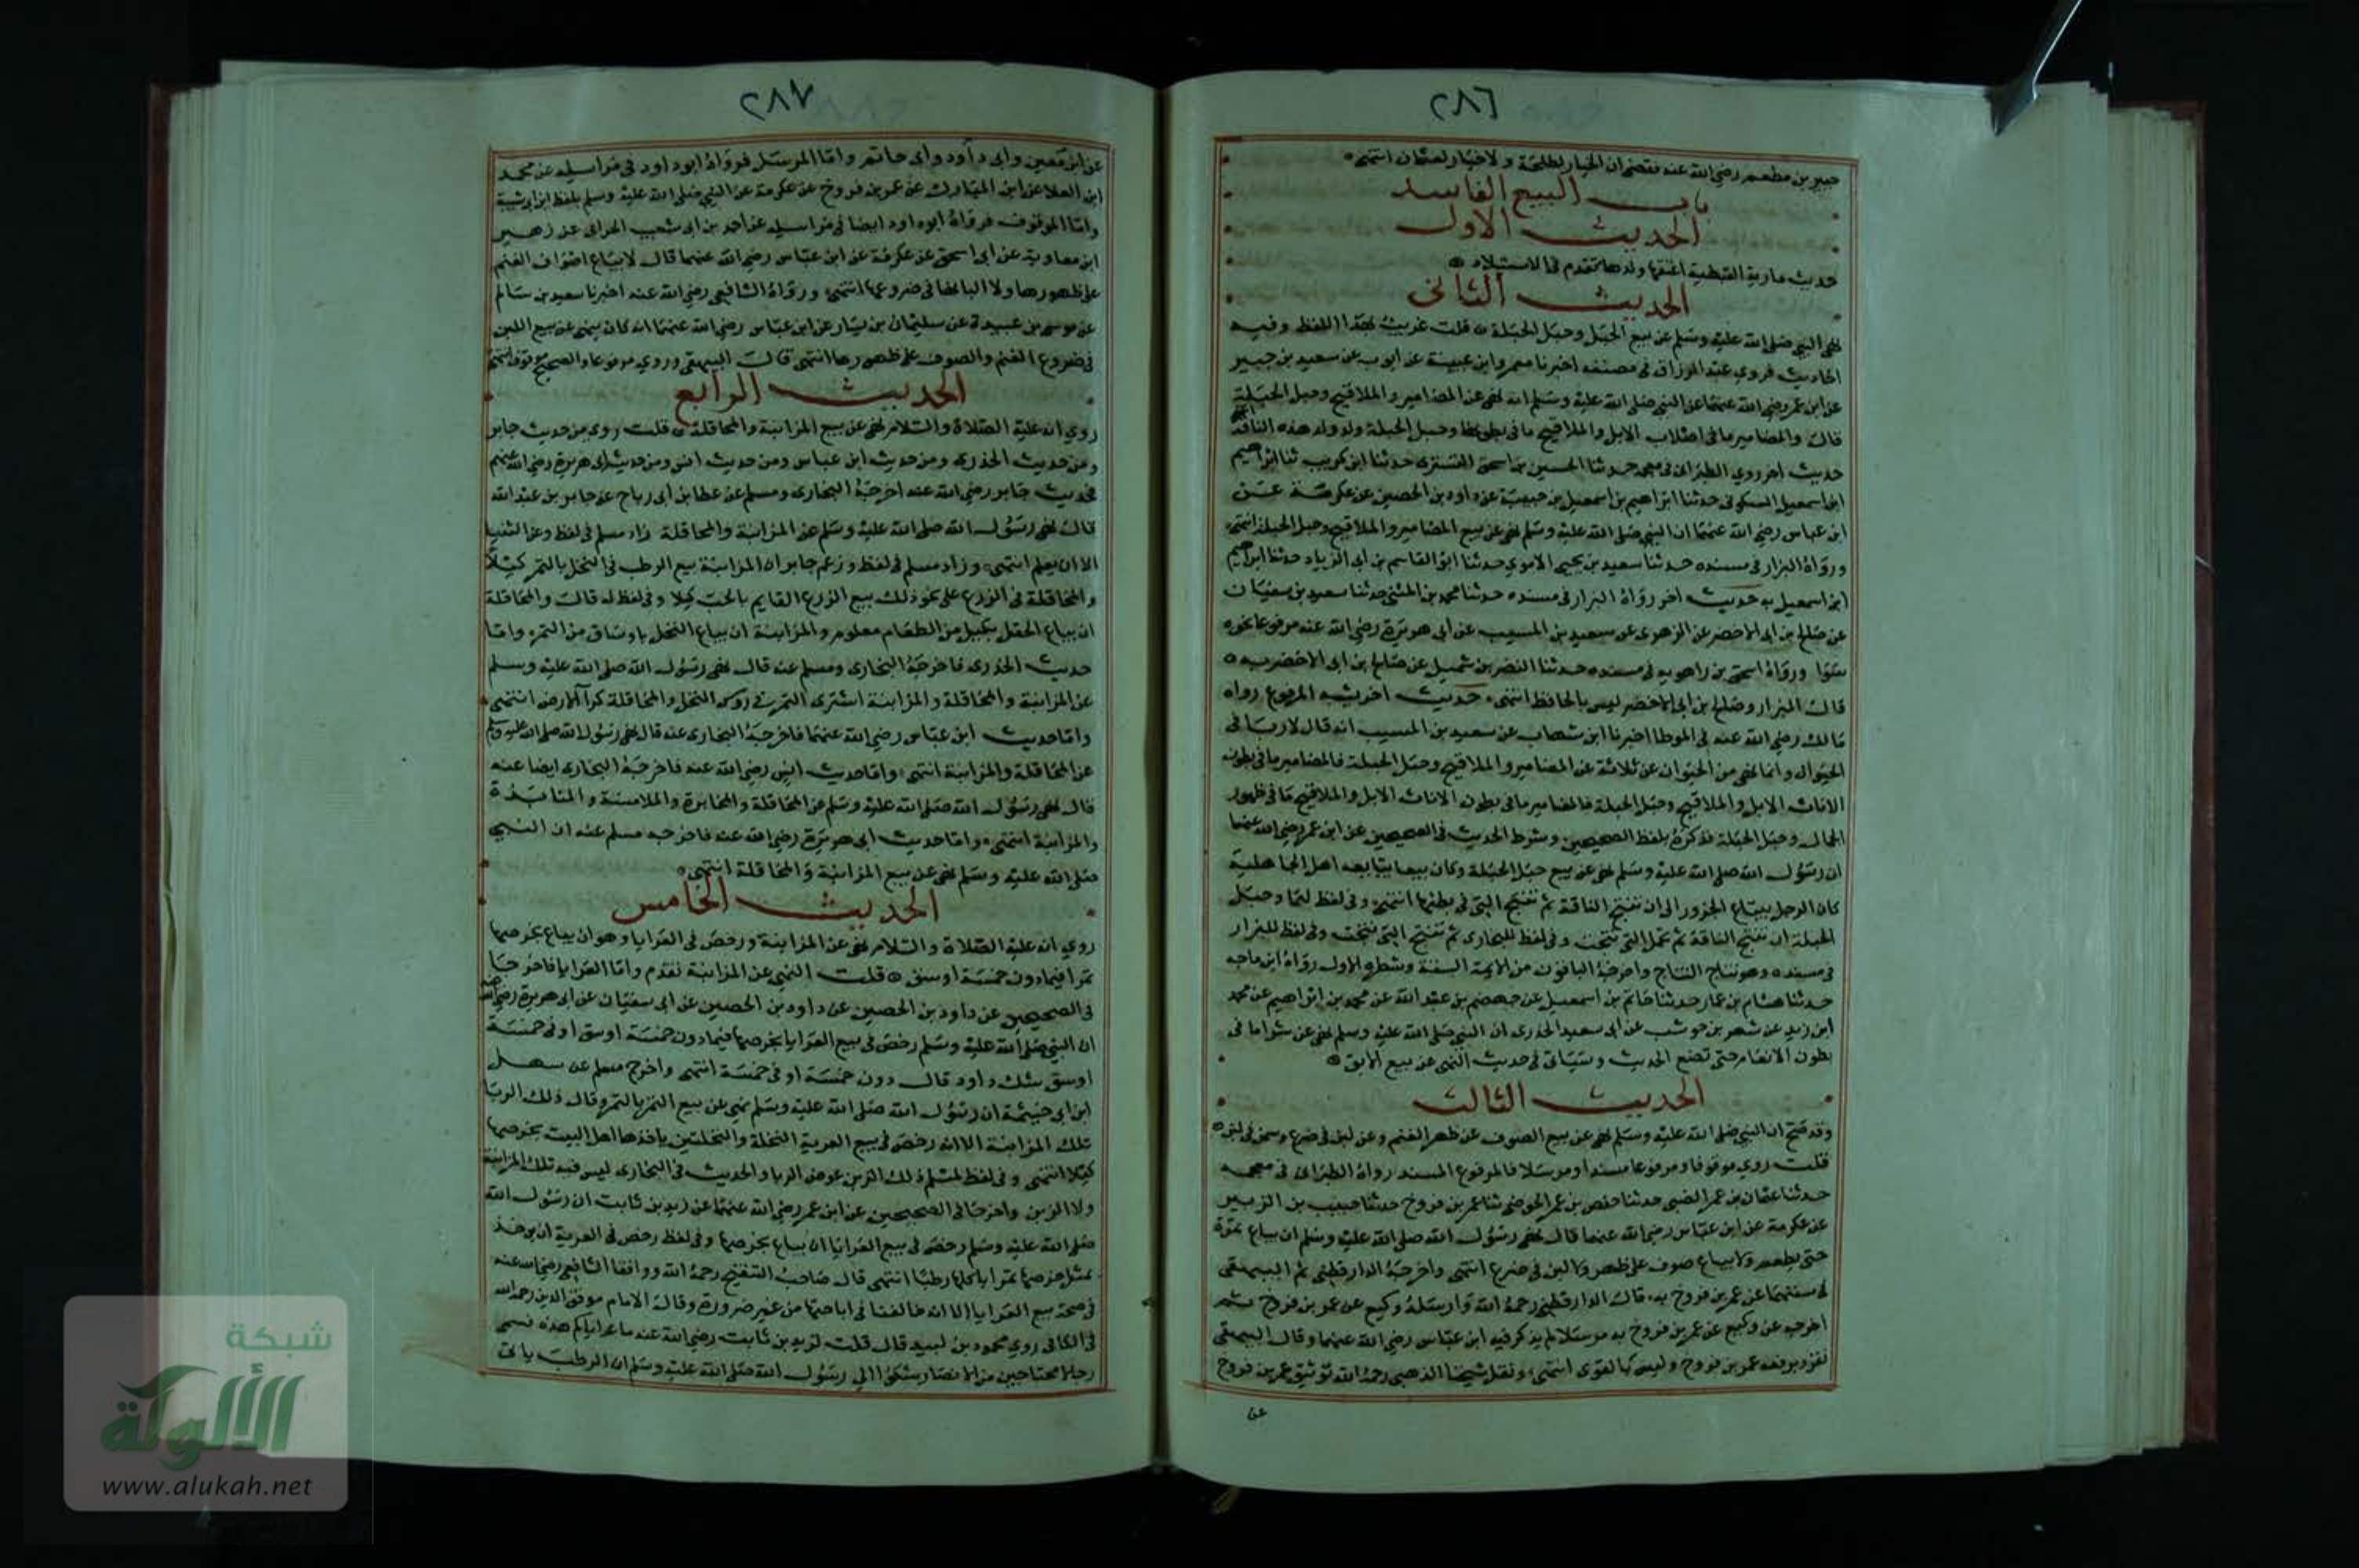 ٢٨٦
جبير بن مطعم رضي الله عنه فقضى ان الخيار لطلحة ولا خيار لعثمان انتهى
باب البيع الفاسد
الحديث الاول
حديث مارية القبطية اعتقها ولدها تقدم في الاستيلاد
الحديث الثانى
نهى النبي صلى الله عليه وسلم عن بيع الحبل وحبل الحبلة قلت غريب بهذا اللفظ وفيه
احاديث فروي عبد الرزاق في مصنفه اخبرنا معمر وابن عيينة عن ايوب عن سعيد بن جبير
عن ابن عمر رضي الله عنهما عن النبي صلى الله عليه وسلم انه نهى عن المضامير والملاقيح وحبل الحبلة
قال والمضامير ما في اصلاب الابل والملاقيح ما في بطونها وحبل الحبلة ولد ولد هذه الناقة
حديث اخر روي الطبرانى في معجمه حدثنا الحسين بن اسحق التسترى حدثنا ابو كريب ثنا ابراهيم
ابن اسمعيل السكونى حدثنا ابراهيم بن اسمعيل بن حبيبة عن داود بن الحصين عن عكرمة عن
ابن عباس رضي الله عنهما ان النبي صلى الله عليه وسلم نهى عن بيع المضامير والملاقيح وحبل الحبلة انتهى
ورواه البزار في مسنده حدثنا سعيد بن يحيى الاموي حدثنا ابو القاسم بن ابى الزياد حدثنا ابراهيم
ابن اسمعيل به حديث اخر رواه البزار في مسنده حدثنا محمد بن المثنى حدثنا سعيد بن سفيان
عن صالح بن ابى الاخضر عن الزهرى عن سعيد بن المسيب عن ابى هريرة رضي الله عنه مرفوعا نحوه
سوا ورواه اسحق بن راهويه في مسنده حدثنا النضر بن شميل عن صالح بن ابى الاخضر به
قال البزار وصالح بن ابى الاخضر ليس بالحافظ انتهى حديث اخر يشبه المرفوع رواه
مالك رضي الله عنه في الموطا اخبرنا ابن شهاب عن سعيد بن المسيب انه قال لا ربا فى
الحيوان وانما نهي من الحيوان عن ثلاثة عن المضامير والملاقيح وحبل الحبلة فالمضامير ما في بطون
الاناث الابل والملاقيح وحبل الحبلة فالمضامير ما في بطون الاناث الابل والملاقيح ما في ظهور
الجمال وحبل الحبلة فذكره بلفظ الصحيحين وشرط الحديث في الصحيحين عن ابن عمر رضي الله عنهما
ان رسول الله صلى الله عليه وسلم نهى عن بيع حبل الحبلة وكان بيعا يتبايعه اهل الجاهلية
كان الرجل يبتاع الجزور الى ان تنتج الناقة ثم تنتج التى في بطنها انتهى وفي لفظ لهما وحبل
الحبلة ان تنتج الناقة ثم تحمل التى نتجت وفي لفظ للبخارى ثم تنتج التى نتجت وفي لفظ للبزار
في مسنده وهو نتاج النتاج واخرجه الباقون من الايمة الستة وشطره الاول رواه ابن ماجه
حدثنا هشام بن عمار حدثنا حاتم بن اسمعيل عن جهضم بن عبد الله عن محمد بن ابراهيم عن محمد
ابن زيد عن شهر بن حوشب عن ابى سعيد الخدرى ان النبي صلى الله عليه وسلم نهى عن شرا ما فى
بطون الانعام حتى تضع الحديث وسياتى في حديث النهى عن بيع الابق
الحديث الثالث
وقد صح ان النبي صلى الله عليه وسلم نهى عن بيع الصوف عن ظهر الغنم وعن لبن في ضرع وسمن في لبن
قلت روي موقوفا ومرفوعا مسندا ومرسلا فالمرفوع المسند رواه الطبرانى في معجمه
حدثنا عثمان بن عمر الضبى حدثنا حفص بن عمر الحوضى ثنا عمر بن فروخ حدثنا حبيب بن الزبير
عن عكرمة عن ابن عباس رضي الله عنهما قال نهى رسول الله صلى الله عليه وسلم ان يباع ثمرة
حتى يطعم ولا يباع صوف على ظهر ولا لبن في ضرع انتهى واخرجه الدارقطنى ثم البيهقى
في سننهما عن عمر بن فروخ به قال الدارقطنى رحمه الله وارسله وكيع عن عمر بن فروخ ثم
اخرجه عن وكيع عن عمر بن فروخ به مرسلا لم يذكر فيه ابن عباس رضي الله عنهما وقال البيهقى
تفرد برفعه عمر بن فروخ وليس بالقوى انتهى ونقل شيخنا الذهبى رحمه الله توثيق عمر بن فروخ
عن
٢٨٧
عن ابن معين وابى داود وابى حاتم واما المرسل فرواه ابو داود في مراسيله عن محمد
ابن العلا عن ابن المبارك عن عمر بن فروخ عن عكرمة عن النبي صلى الله عليه وسلم بلفظ ابن ابى شيبة
واما الموقوف فرواه ابو داود ايضا في مراسيله عن احمد بن ابى شعيب الحرانى عن زهير
ابن معاوية عن ابى اسحق عن عكرمة عن ابن عباس رضي الله عنهما قال لا يباع اصواف الغنم
على ظهورها ولا البانها فى ضروعها انتهى ورواه الشافعى رضي الله عنه اخبرنا سعيد بن سالم
عن موسى بن عبيدة عن سليمان بن يسار عن ابن عباس رضي الله عنهما انه كان ينهى عن بيع اللبن
في ضروع الغنم والصوف على ظهورها انتهى قال البيهقى وروي مرفوعا والصحيح موقوف انتهى
الحديث الرابع
روي انه عليه الصلاة والسلام نهى عن بيع المزابنة والمحاقلة قلت روي من حديث جابر
ومن حديث الخدرى ومن حديث ابن عباس ومن حديث انس ومن حديث ابى هريرة رضي الله عنهم
فحديث جابر رضي الله عنه اخرجه البخارى ومسلم عن عطا بن ابى رباح عن جابر بن عبد الله
قال نهى رسول الله صلى الله عليه وسلم عن المزابنة والمحاقلة زاد مسلم في لفظ وعن الثنيا
الا ان يعلم انتهى وزاد مسلم في لفظ وزعم جابر ان المزابنة بيع الرطب في النخل بالتمر كيلا
والمحاقلة في الزرع على نحو ذلك بيع الزرع القايم بالحب كيلا وفي لفظ له قال والمحاقلة
ان يباع الحقل بكيل من الطعام معلوم والمزابنة ان يباع النخل باوساق من التمر واما
حديث الخدرى فاخرجه البخارى ومسلم عنه قال نهى رسول الله صلى الله عليه وسلم
عن المزابنة والمحاقلة والمزابنة اشترى التمر في روس النخل والمحاقلة كرآ الارض انتهى
واما حديث ابن عباس رضي الله عنهما فاخرجه البخارى عنه قال نهى رسول الله صلى الله عليه وسلم
عن المحاقلة والمزابنة انتهى واما حديث انس رضي الله عنه فاخرجه البخارى ايضا عنه
قال نهى رسول الله صلى الله عليه وسلم عن المحاقلة والمخابرة والملامسة والمنابذة
والمزابنة انتهى واما حديث ابى هريرة رضي الله عنه فاخرجه مسلم عنه ان النبي
صلى الله عليه وسلم نهى عن بيع المزابنة والمحاقلة انتهى
الحديث الخامس
روي انه عليه الصلاة والسلام نهى عن المزابنة ورخص في العرايا وهو ان يباع بخرصها
تمرا فيما دون خمسة اوسق قلت النهى عن المزابنة تقدم واما العرايا فاخرجا
في الصحيحين عن داود بن الحصين عن داود بن الحصين عن ابى سفيان عن ابى هريرة رضي الله عنه
ان النبي صلى الله عليه وسلم رخص في بيع العرايا بخرصها فيما دون خمسة اوسق او في خمسة
اوسق شك داود قال دون خمسة او في خمسة انتهى واخرج مسلم عن سهل
ابن ابى حيثمة ان رسول الله صلى الله عليه وسلم نهى عن بيع الثمر بالتمر وقال ذلك الربا
تلك المزابنة الا انه رخص في بيع العرية النخلة والنخلتين ياخذها اهل البيت بخرصها
كيلا انتهى وفي لفظ لمسلم ذلك الزبن عوض الربا والحديث في البخارى ليس فيه تلك المزابنة
ولا الزبن واخرجا في الصحيحين عن ابن عمر رضي الله عنهما عن زيد بن ثابت ان رسول الله
صلى الله عليه وسلم رخص في بيع العرايا ان يباع بخرصها وفي لفظ رخص في العرية ان يوخذ
بمثل خرصها تمرا ياكلها رطبا انتهى قال صاحب التنقيح رحمه الله ووافقنا الشافعى رضي الله عنه
في صحة بيع العرايا الا انه خالفنا في اباحتها من غير ضرورة وقال الامام موفق الدين رحمه الله
في الكافى روي محمود بن لبيد قال قلت لزيد بن ثابت رضي الله عنه ما عراياكم هذه فسمى
رجالا محتاجين من الانصار شكوا الى رسول الله صلى الله عليه وسلم ان الرطب ياتى
شبكة
الألوكة
www.alukah.net